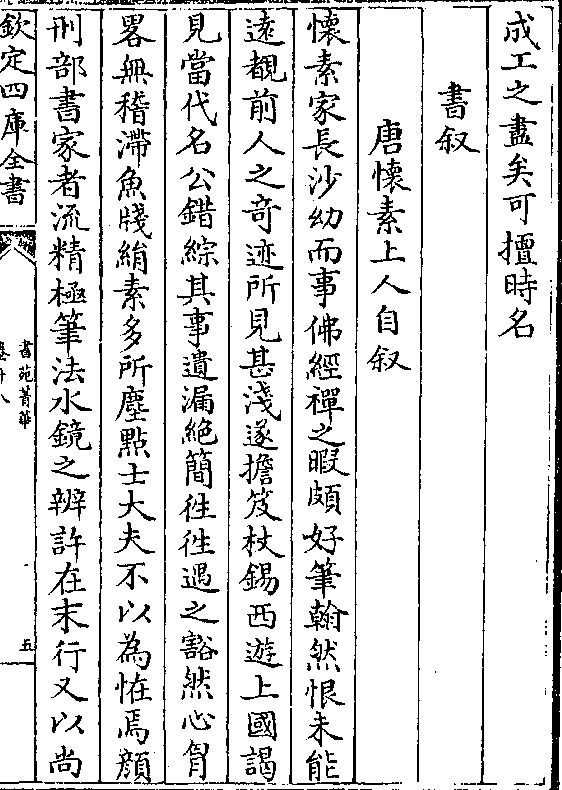 成工之盡矣可擅時名
書叙
唐懷素上人自叙
懷素家長沙幼而事佛經禪之暇頗好筆翰然恨未能
遠覩前人之奇迹所見甚淺遂擔笈杖錫西遊上國謁
見當代名公錯綜其事遺漏絶簡徃徃遇之豁然心胷
畧無稽滯魚牋絹素多所塵點士大夫不以為恠焉顔
刑部書家者流精極筆法水鏡之辨許在末行又以尚
欽定四庫全書
書苑菁華
卷十八
五